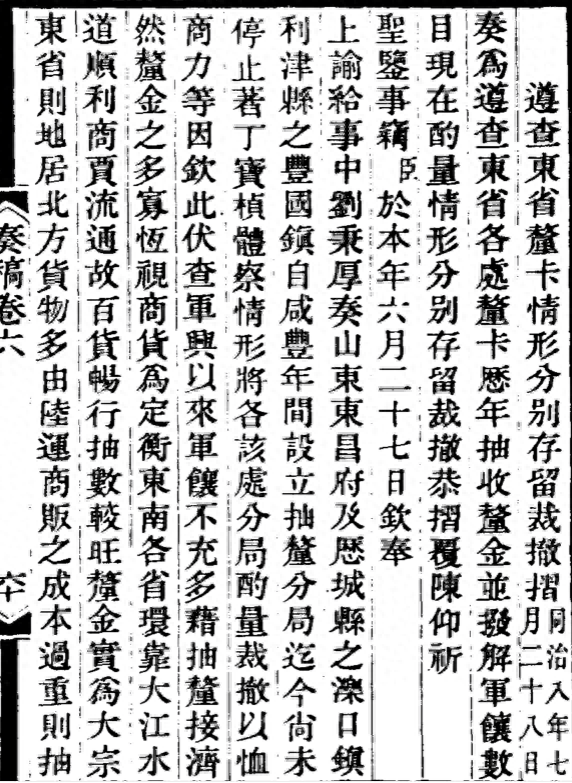 遵查東省釐卡情形分別存留裁撤摺同治八年七月二十八日
奏為遵查東省各處釐卡歷年抽收釐金並撥解軍饟數
目現在酌量情形分別存留裁撤恭摺覆陳仰祈
聖鑒事竊臣於本年六月二十七日欽奉
上諭給事中劉秉厚奏山東東昌府及歷城縣之濼口鎮
利津縣之豐國鎮自咸豐年間設立抽釐分局迄今尙未
停止著丁寶楨體察情形將各該處分局酌量裁撤以恤
商力等因欽此伏查軍興以來軍饟不充多藉抽釐接濟
然釐金之多寡恆視商貨為定衡東南各省環靠大江水
道順利商賈流通故百貨暢行抽數較旺釐金實為大宗
東省則地居北方貨物多由陸運商販之成本過重則抽
奏稿卷六 六十